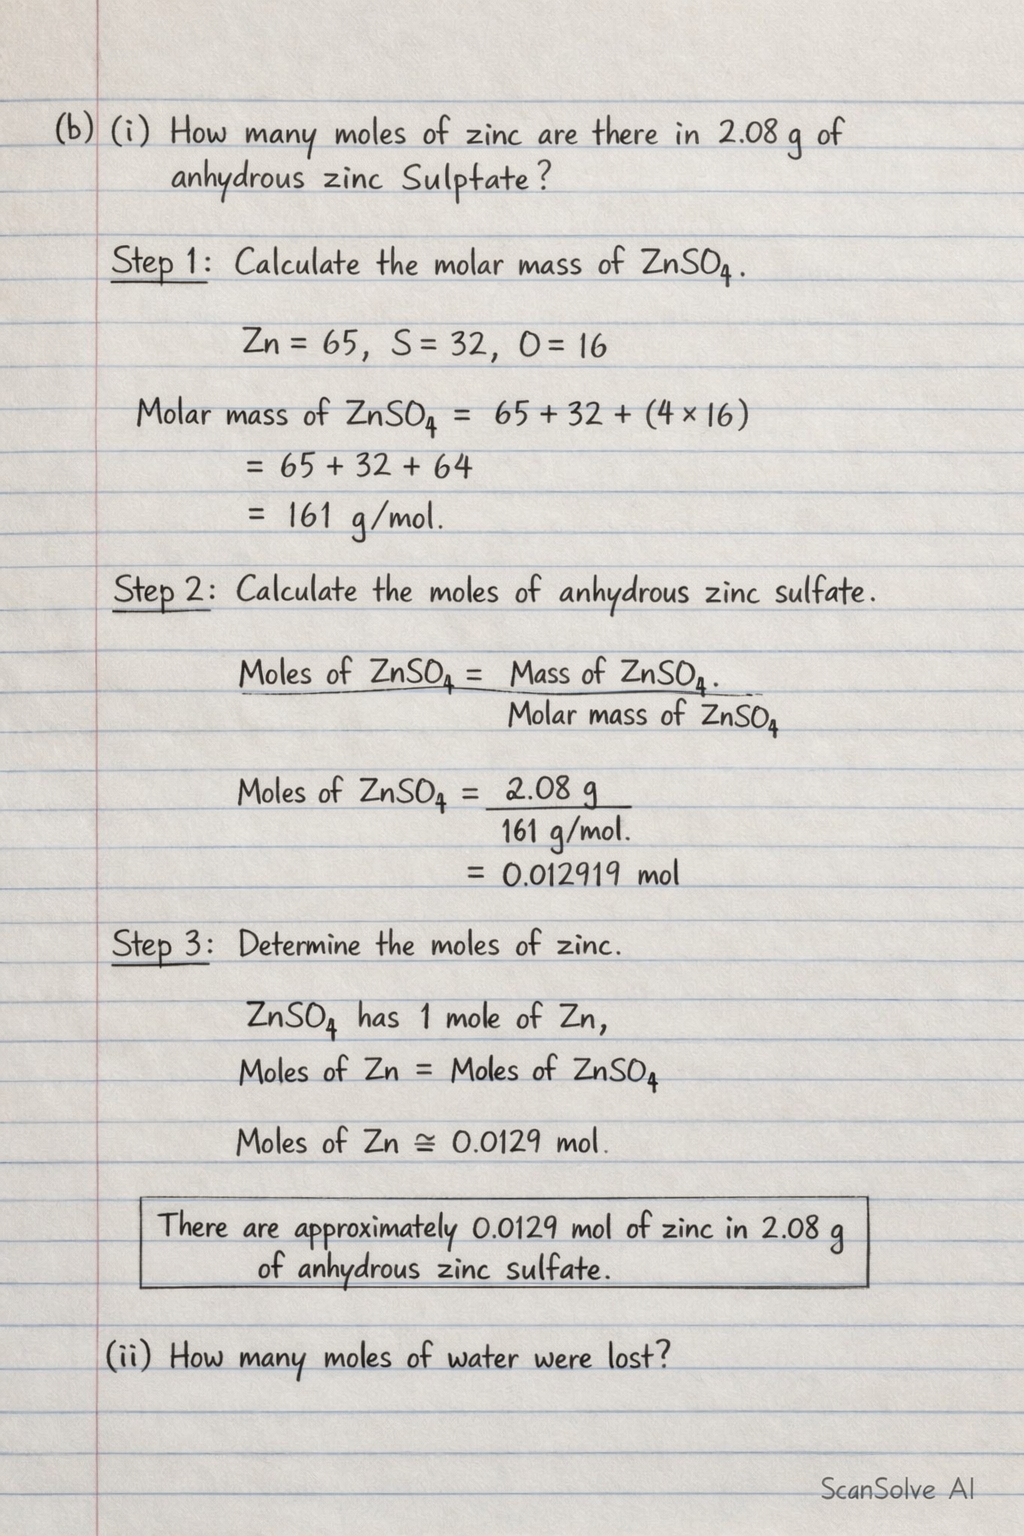 (b) (i) How many moles of zinc are there in 2.08 g of
anhydrous zinc Sulptate?
Step 1: Calculate the molar mass of ZnSO₄.
Zn = 65, S = 32, O = 16
Molar mass of ZnSO₄ = 65 + 32 + (4 × 16)
= 65 + 32 + 64
= 161 g/mol.
Step 2: Calculate the moles of anhydrous zinc sulfate.
Moles of ZnSO₄ = Mass of ZnSO₄.
Molar mass of ZnSO₄
Moles of ZnSO₄ = 2.08 g
161 g/mol.
= 0.012919 mol
Step 3: Determine the moles of zinc.
ZnSO₄ has 1 mole of Zn,
Moles of Zn = Moles of ZnSO₄
Moles of Zn ≅ 0.0129 mol.
There are approximately 0.0129 mol of zinc in 2.08 g
of anhydrous zinc sulfate.
(ii) How many moles of water were lost?
ScanSolve AI